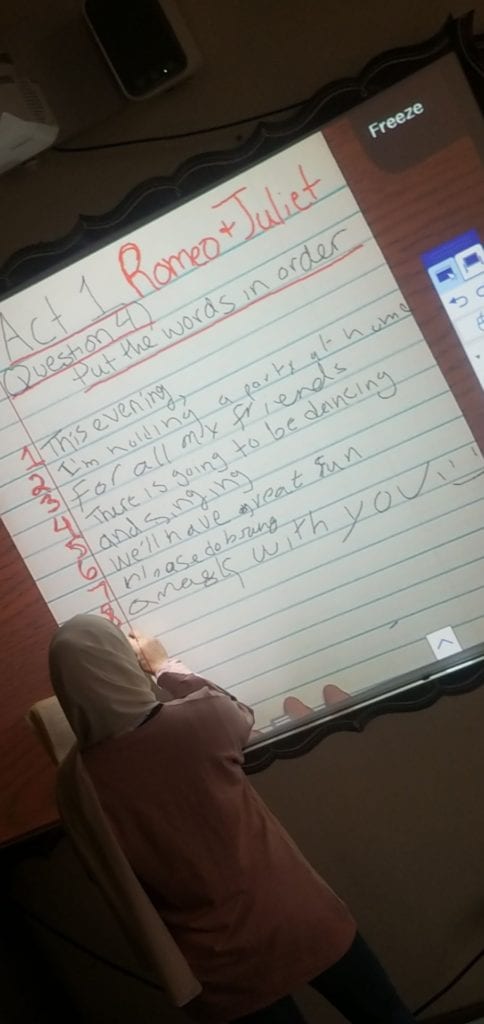 Freeze
Act 1 Romeo + Juliet
(Question 4)
Put the words in order
1 This evening,
2 I'm holding a party at home
3 For all my friends
4 There is going to be dancing
5 and singing
6 we'll have great fun
7 please do bring
8 a mask with you :)